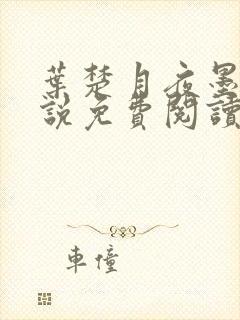 葉楚月夜墨
說免費閱讀
車憧